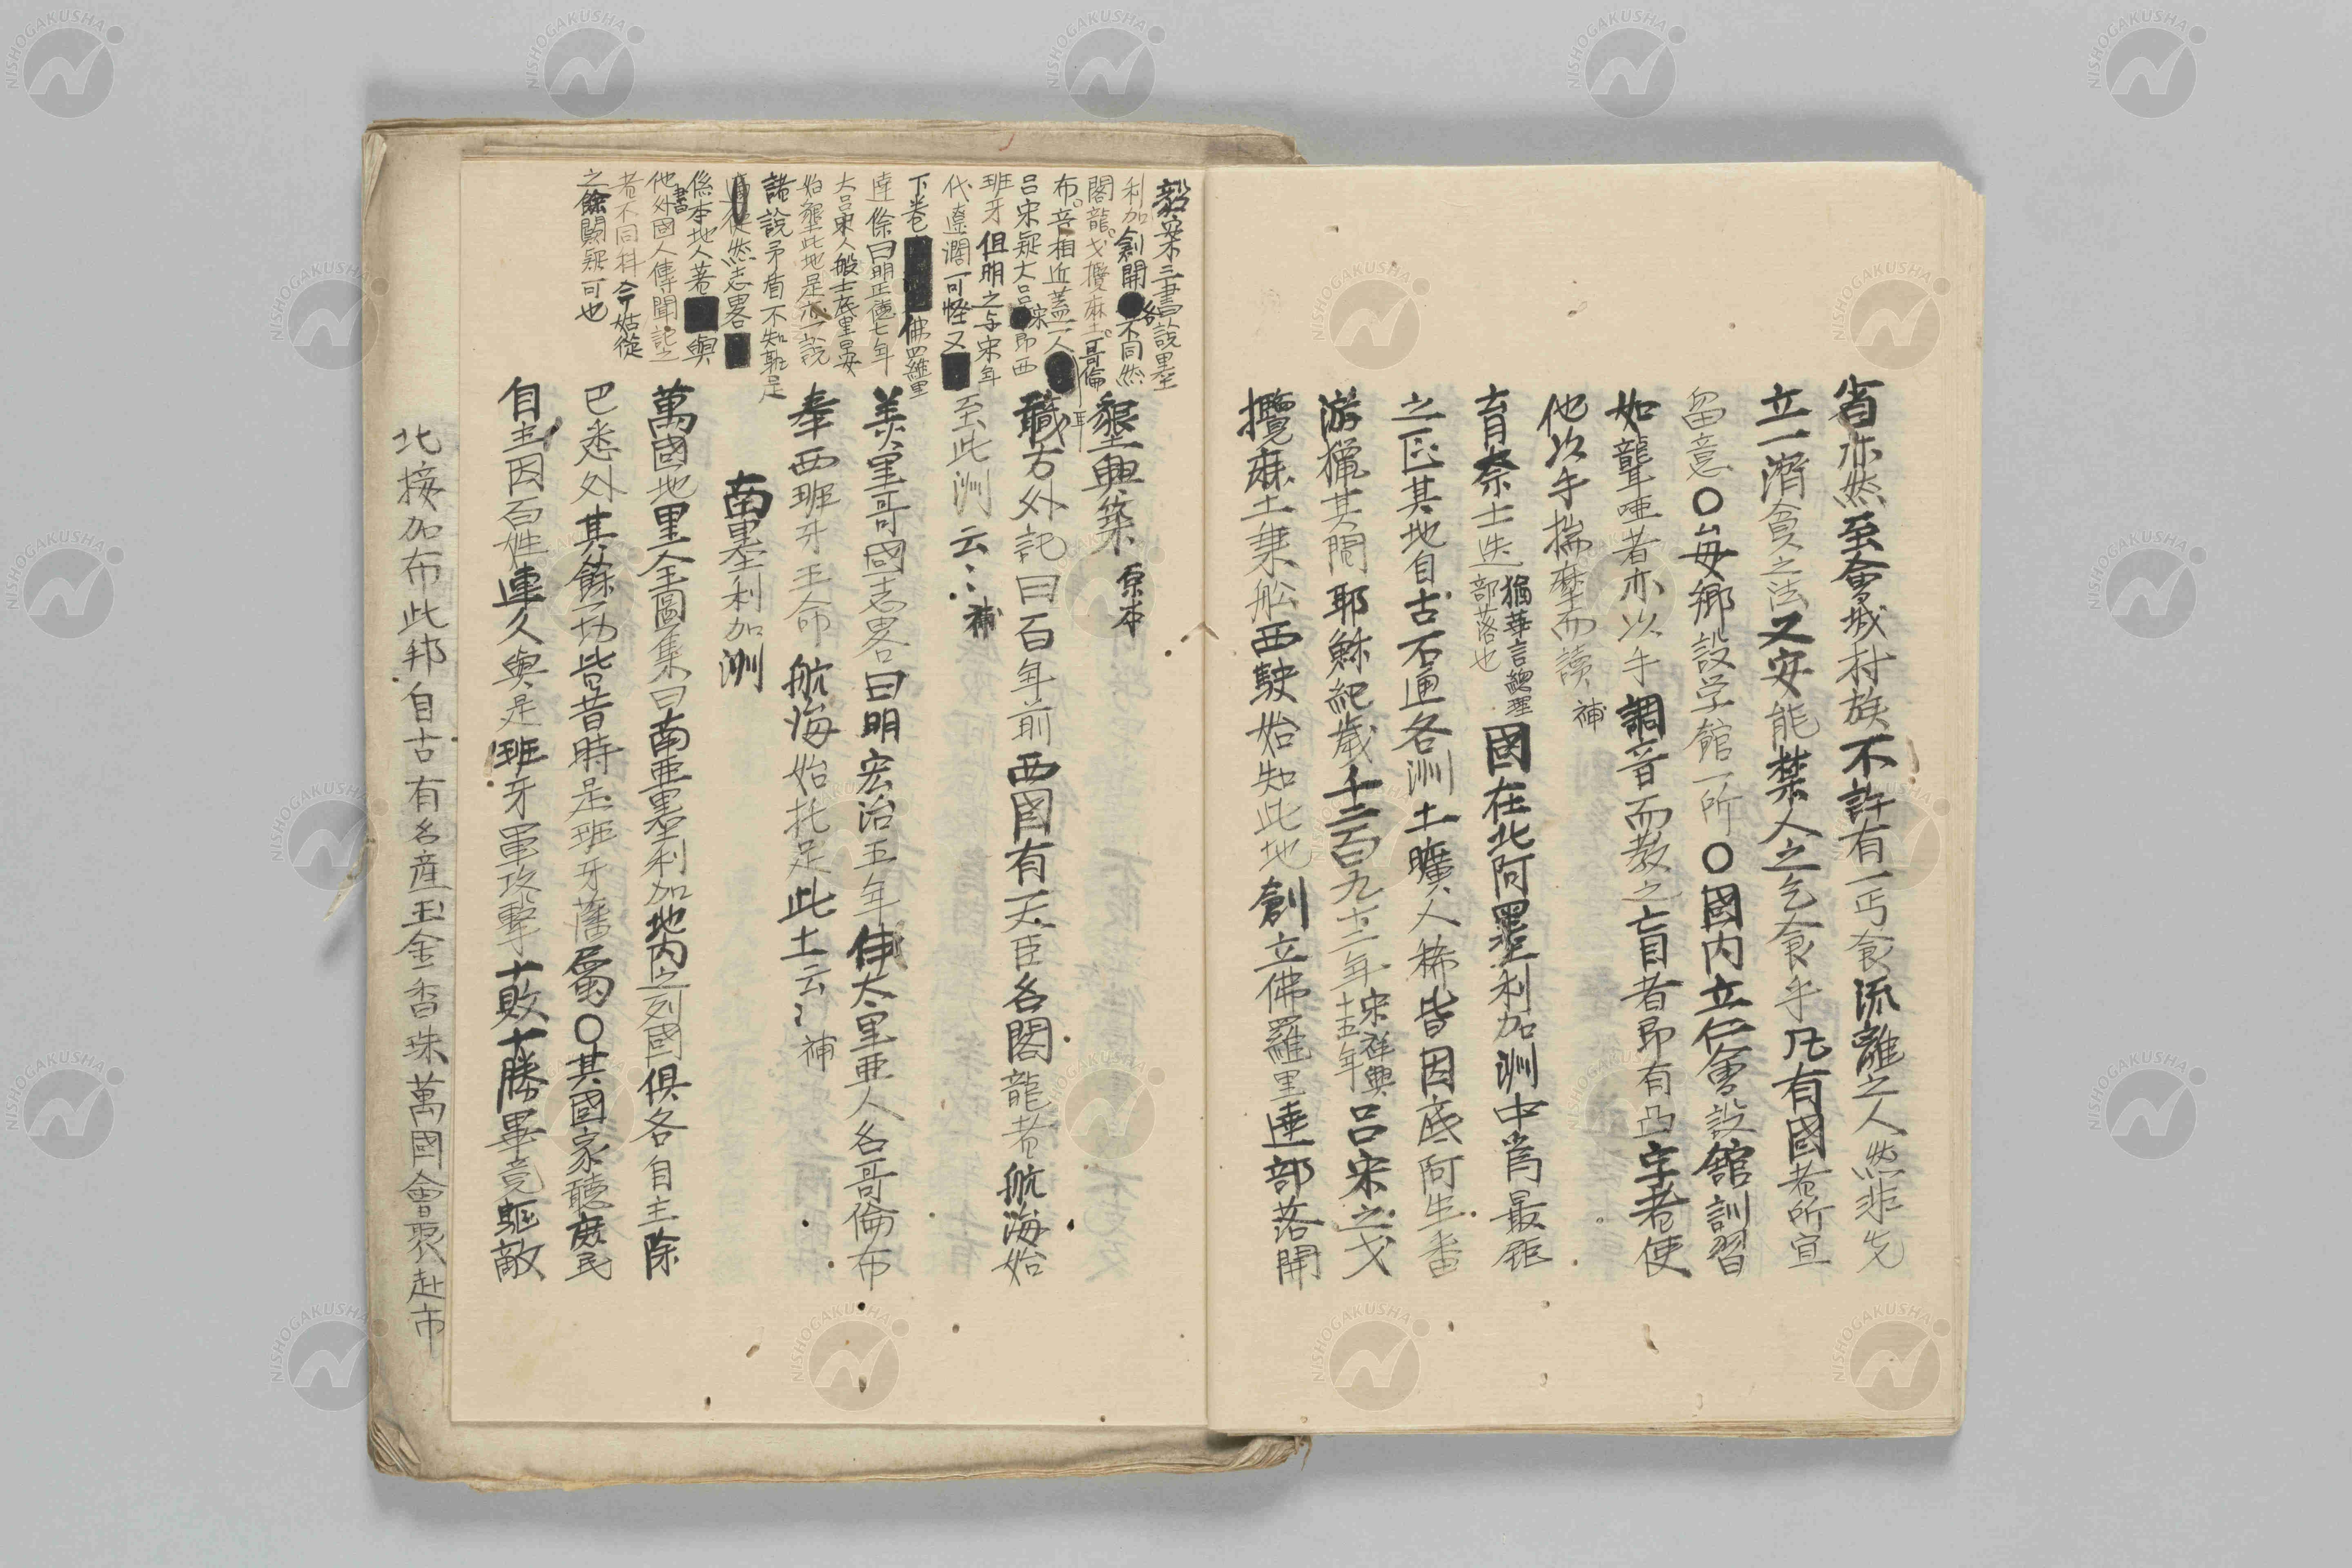 省亦然至會城村族不許有一丐食流離之人然非先
立一濟貧之法又安能禁人之乞食乎凡有國者所宜
留意〇每鄉設学館一所〇國内立仁會設舘訓習
如聾啞者亦以手調音而教之盲者即有凸字老使
他以手揣摩而讀 補
育奈士迭 猶華言總理
部落也 國在北阿墨利加洲中爲最鉅
之區其地自古不通各洲土曠人稀皆因底阿生番
游獵其間耶穌紀歲千二百九十二年 宋祥興
十五年 呂宋之戈
攬麻土乗舩西駛始知此地創立佛羅里達部落開
毅案三書說墨
利加創開各不同然
閣龍戈攬麻土哥倫
布音相近蓋一人耳
呂宋疑大呂宋即西
班牙但明之与宋年
代遼濶可怪又
下卷佛羅里
達條曰明正德七年
大呂宋人般士底里晏
始墾此地是亦一説
諸說矛盾不知孰是
然志畧
係本地人著與
他書外國人傳聞記之
者不同科今姑從
之餘闕疑可也
墾興築 原本
職方外記曰百年前西國有一大臣名閣龍者航海始
至此洲云々 補
美里哥國志畧曰明宏治五年伊太里亜人名哥倫布
奉西班牙王命航海始托足此土云々 補
南墨利加洲
萬國地里全圖集曰南亜墨利加地内之列國俱各自主除
巴悉外其餘一切皆昔時是班牙藩屬〇其國家聽庶民
自主因百姓連久與是班牙軍攻擊十敗十勝畢竟驅敵
北接加布此邦自古有名産玉金香珠萬國會聚赴市
NISHOGAKUSHA